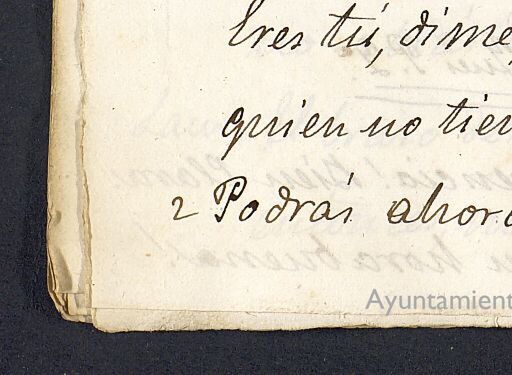 Eres tú, dime,
quien no tien
2 Podrás ahora
Ayuntamient